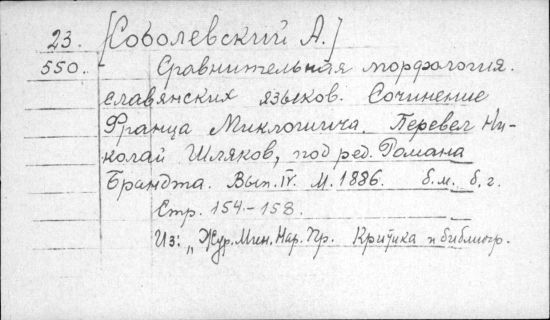 23. [Соболевский А.]
550. Сравнительная морфология
славянских языков. Сочинение
Франца Миклошича. Перевел Ни-
колай Шляков, под ред. Романа
Брандта. Вып. IV. М. 1886. б.м. б.г.
Стр. 154-158.
Из: „Жур. Мин. Нар. Пр. Критика и библиогр.